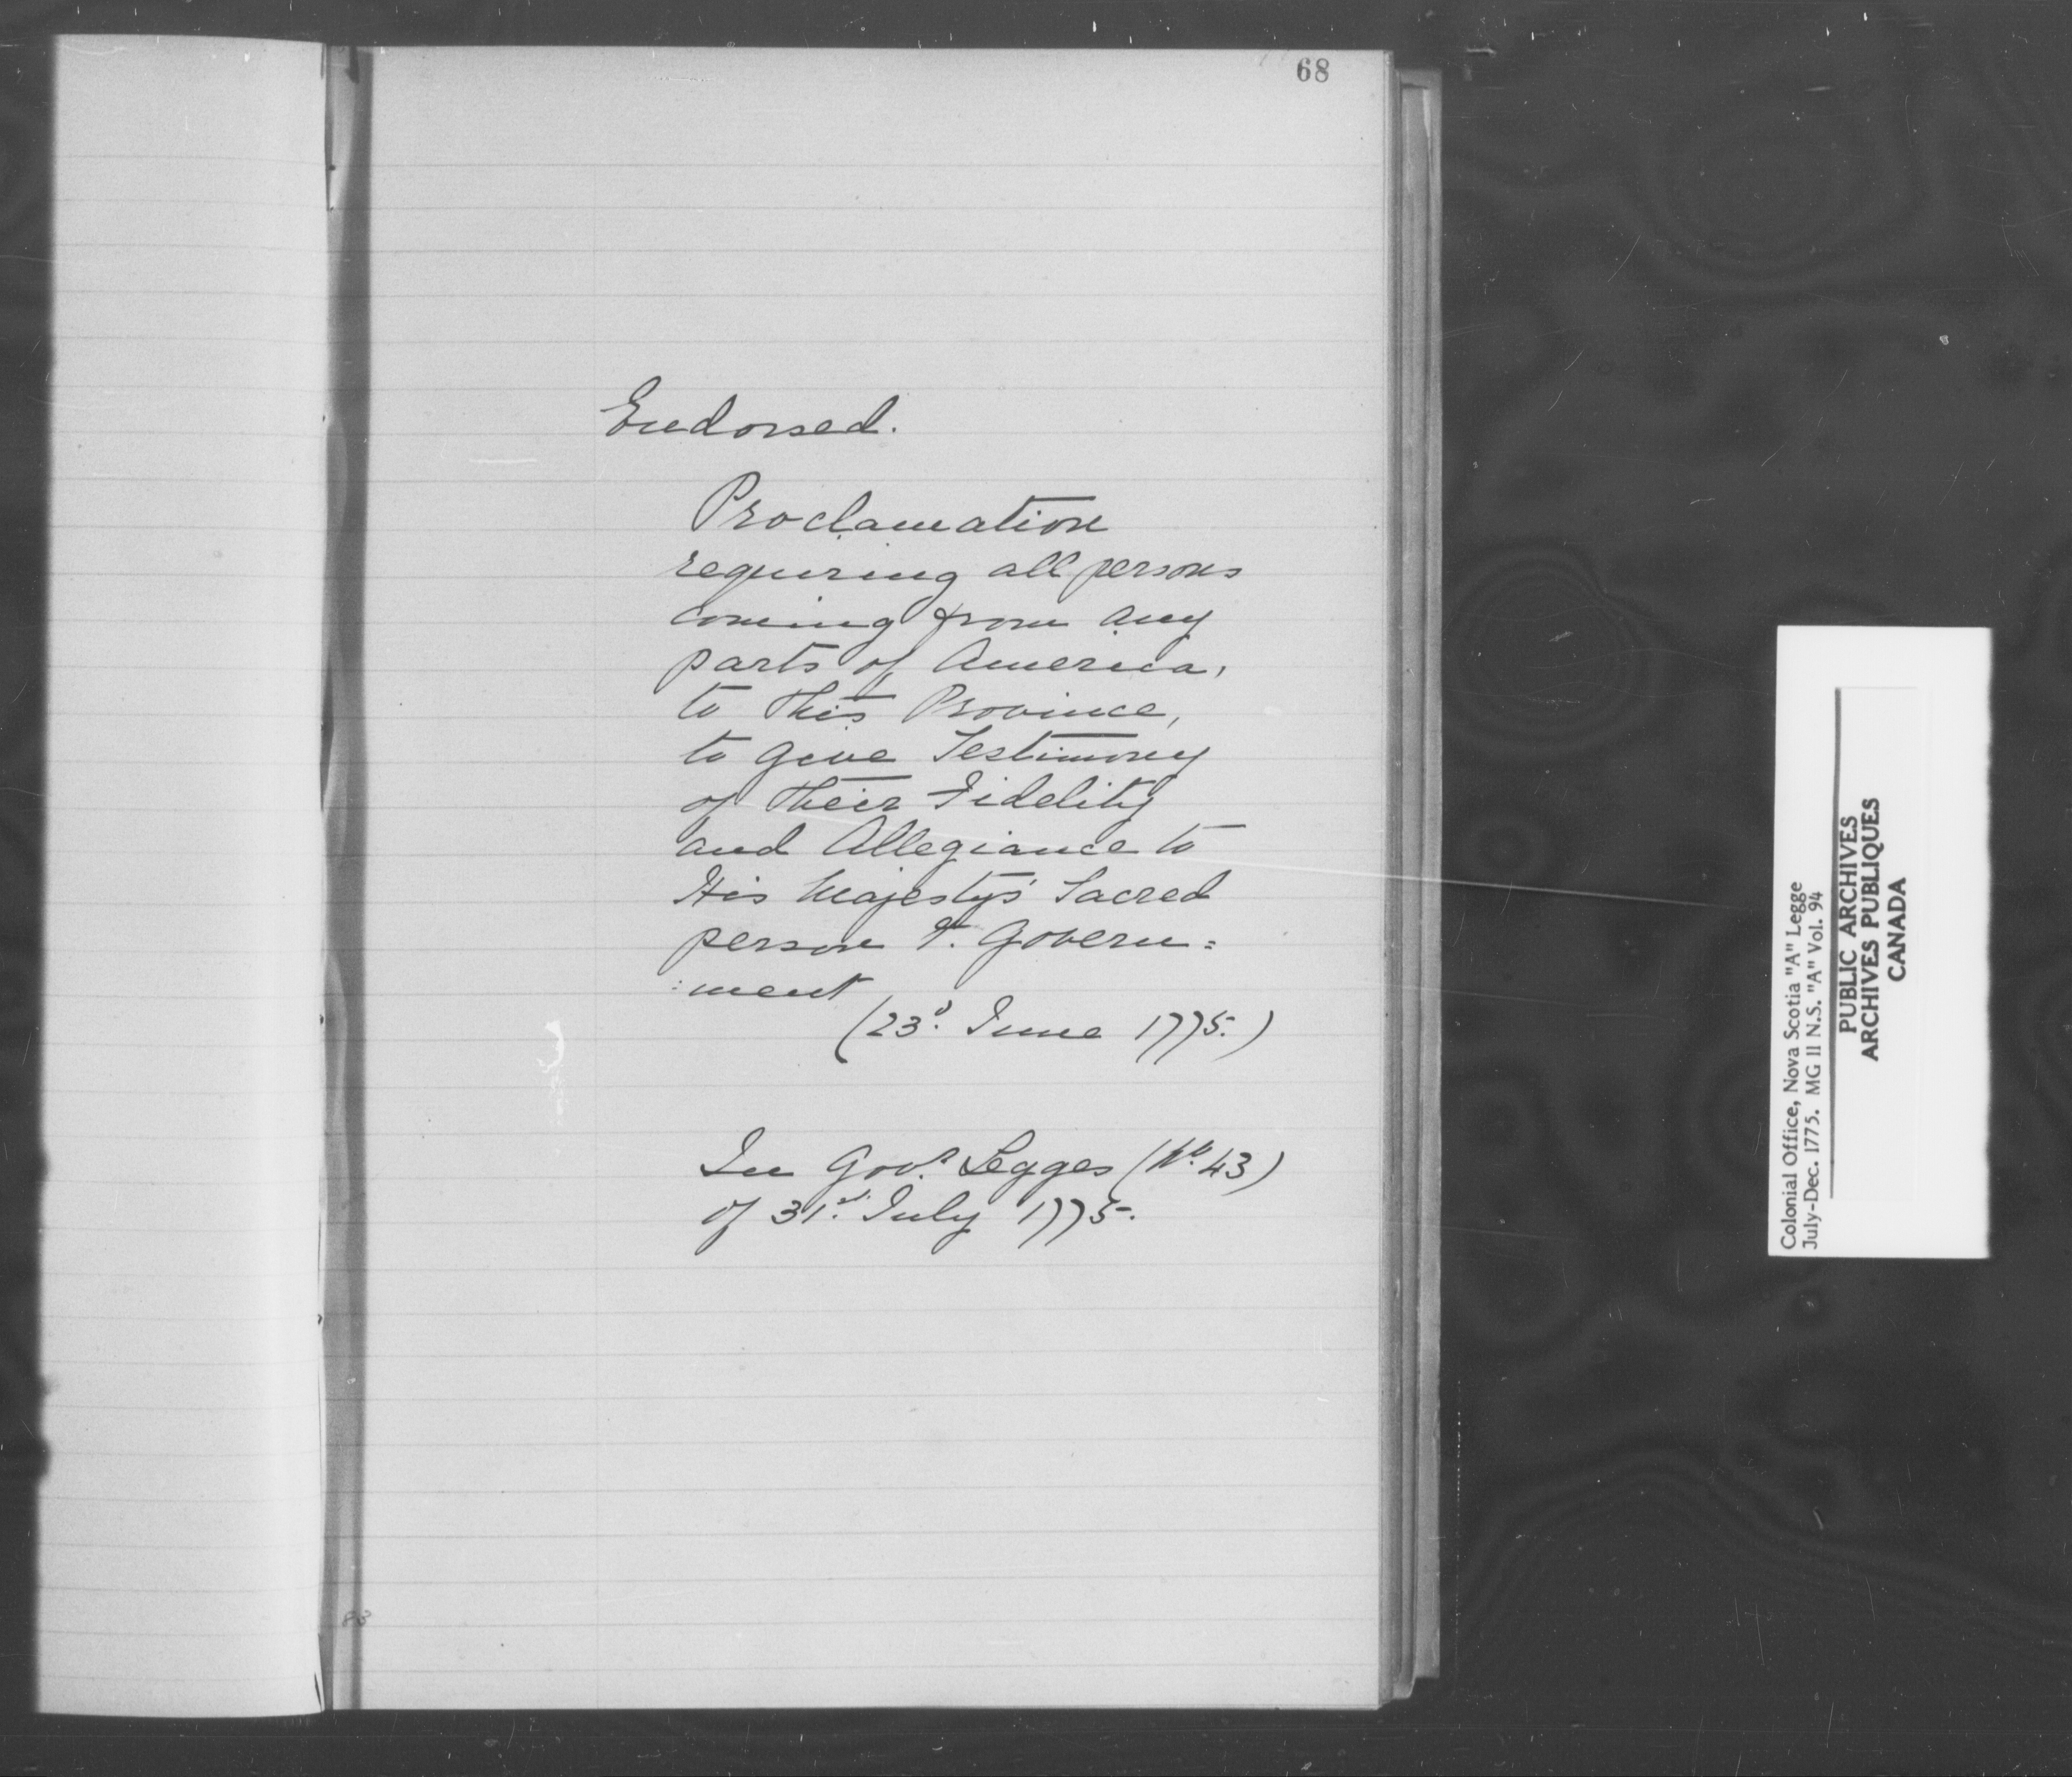 68
Endorsed.
Proclamation
requiring all persons
coming from any
parts of America,
to this Province,
to give Testimony
of their Fidelity
and Allegiance to
His Majestys' Sacred
person &. Govern=
:ment
(23d. June 1775.)
In Govr. Legges (No. 43)
of 31st. July 1775.
83
Colonial Office, Nova Scotia "A" Legge
July-Dec. 1775. MG 11 N.S. "A" Vol. 94
PUBLIC ARCHIVES
ARCHIVES PUBLIQUES
CANADA